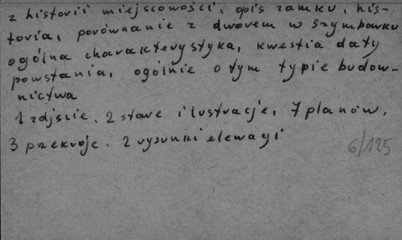 z historii miejscowości, opis zamku, his-
toria, porównanie z dworem w Szymbarku
ogólna charakterystyka, kwestia daty
powstania, ogólnie o tym typie budow-
nictwa
1 zdjście, 2 stare ilustracje, 7 planów,
3 przekroje. 2 rysunki elewacji
6/125